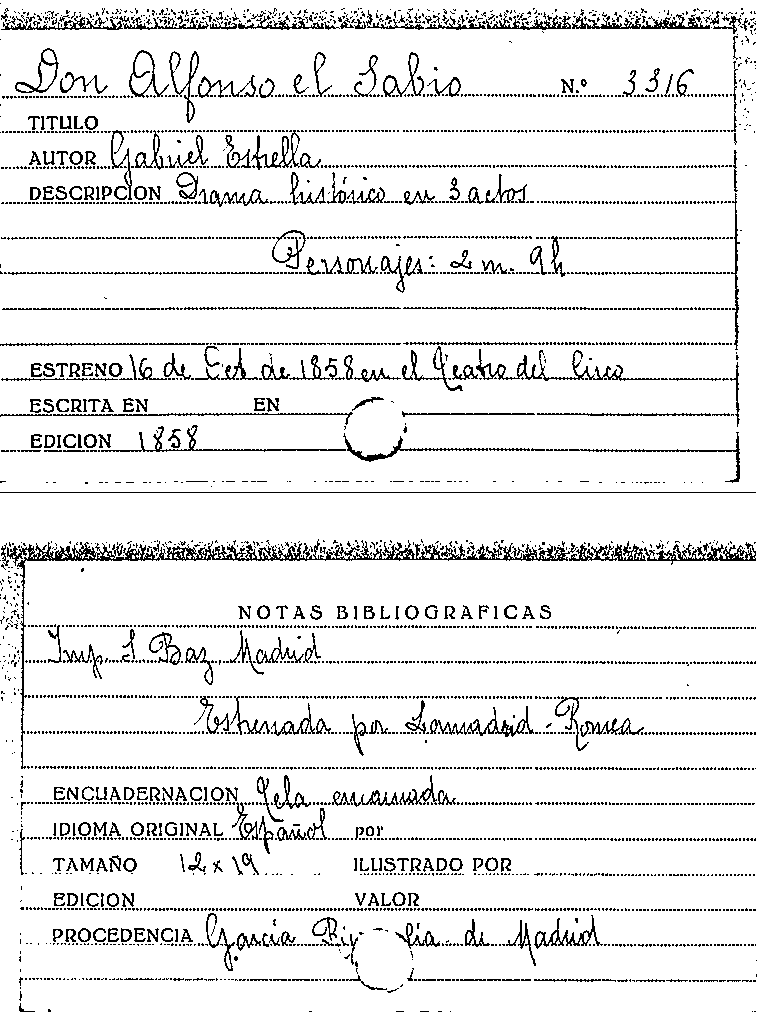 Don Alfonso el Sabio N.º 3316
TITULO
AUTOR Gabriel Estrella
DESCRIPCION Drama histórico en 3 actos
Personajes: 2 m. 9h
ESTRENO 16 de Oct de 1858 en el Teatro del Circo
ESCRITA EN EN
EDICION 1858
NOTAS BIBLIOGRAFICAS
Imp. S Baz Madrid
Estrenada por Lamadrid - Romea
ENCUADERNACION Tela encarnada
IDIOMA ORIGINAL Español por
TAMAÑO 12 x 19 ILUSTRADO POR
EDICION VALOR
PROCEDENCIA García de Madrid